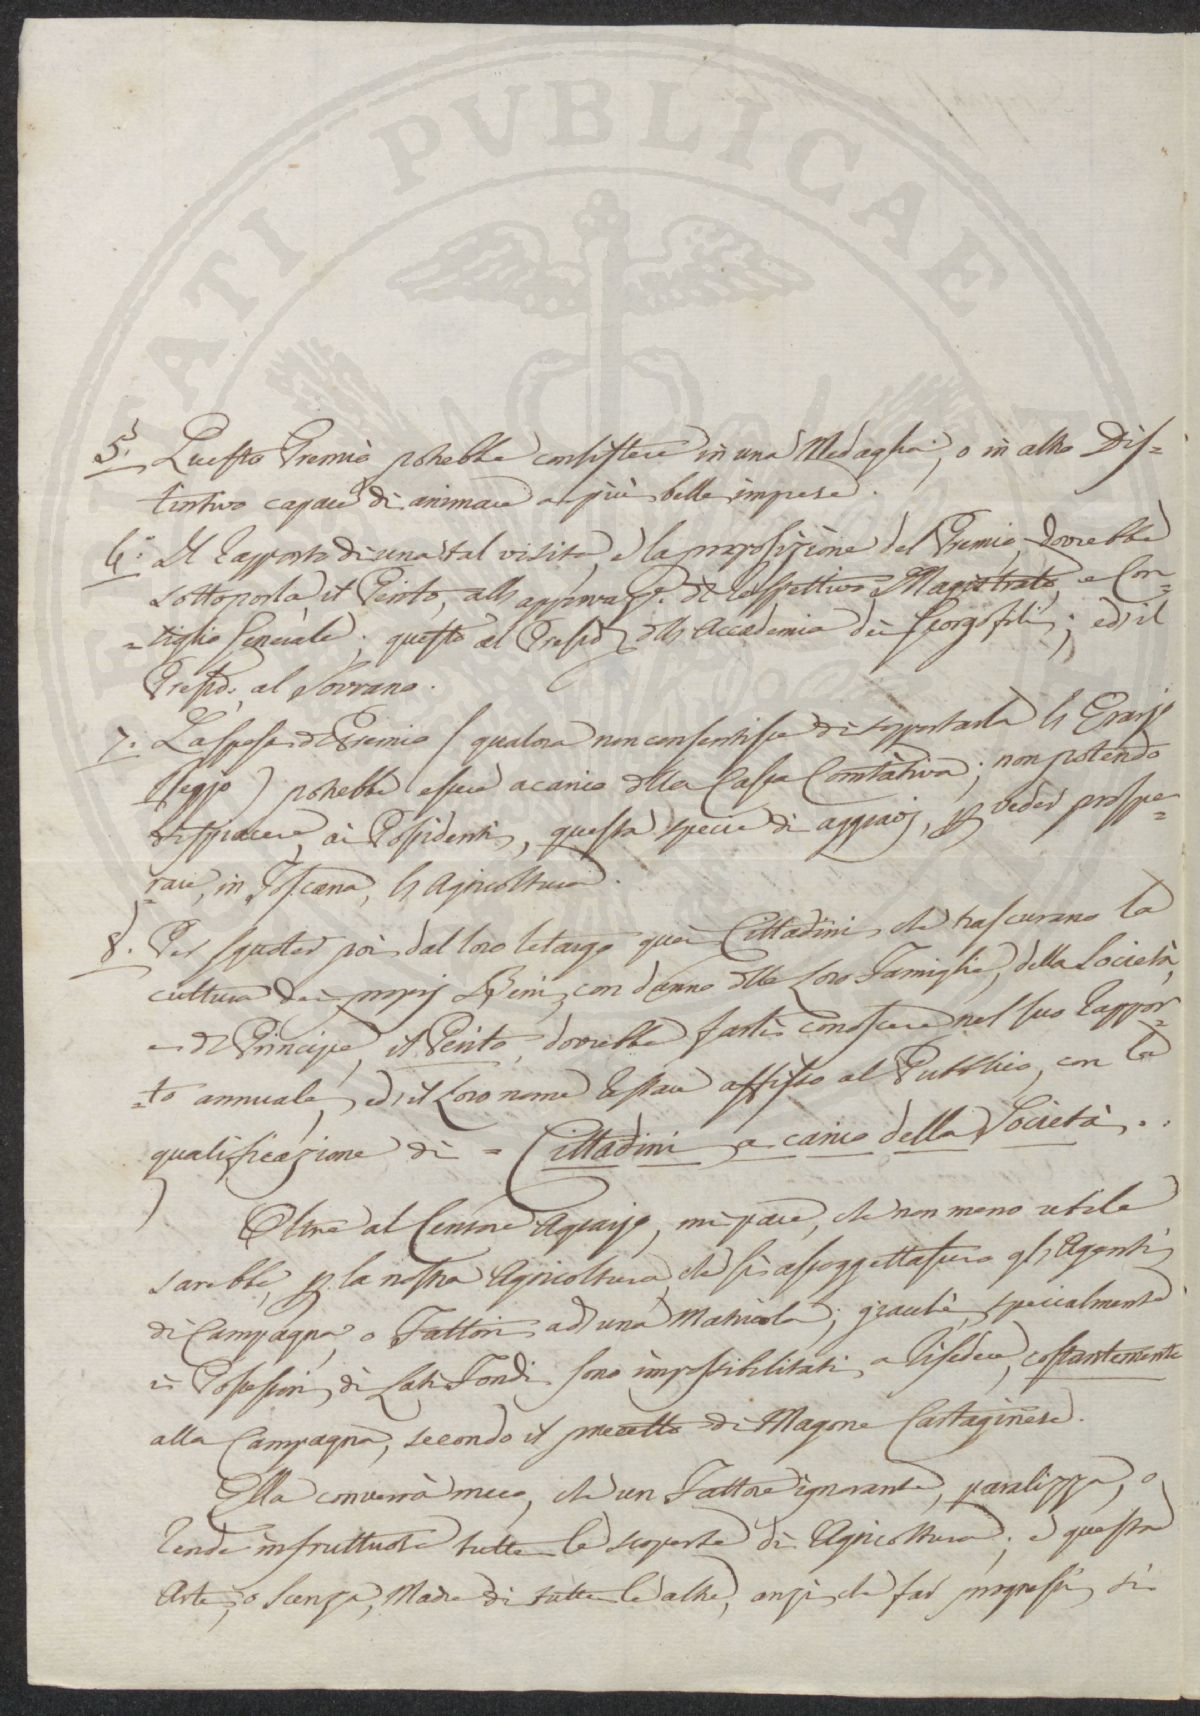 PROSPERITATI PUBLICAE
5. Questo Premio potrebbe consistere in una Medaglia, o in altro Dis-
tintivo capace di animare a più belle imprese.
6. Il Rapporto di una tal visita, e la proposizione del Premio, dovrebbe
sottoporla, il Perito, all' approvaz.e del respettivo Magistrato, e Con-
=siglio Generale; questo al Presid.e dell' Accademia dei Georgofili; ed il
Presid.e al Sovrano.
7. La spesa del Premio (qualora non consentisse di sopportarla l'Erario
Regio) potrebbe essere a carico della Cassa Comitativa; non potendo
dispiacere, ai Possidenti, questa specie di aggravj, p. veder prospe-
=rare, in Toscana, l'Agricoltura.
8. Per squoter poi dal loro letargo quei Cittadini che trascurano la
cultura dei proprj Beni, con danno delle Loro Famiglie, della Società,
e del Principe, il Perito, dovrebbe farli conoscere nel suo Rappor-
=to annuale, ed il Loro nome restare affisso al Pubblico, con la
qualificazione di = Cittadini a carico della Società..
Oltre al Censore Agrario, mi pare, che non meno utile
sarebbe, p. la nostra Agricoltura, che si assoggettassero gli Agenti
di Campagna, o Fattori ad una Matricola; giacchè, specialmente
i Possessori di Lati Fondi sono impossibilitati a risedere, costantemente
alla Campagna, secondo il precetto di Magone Cartaginese.
Ella converrà meco, che un Fattore ignorante, paralizza, o
rende infruttuose tutte le scoperte di Agricoltura; e questa
Arte, o Scenza, Madre di tutte le altre, anzi che far progressi, si